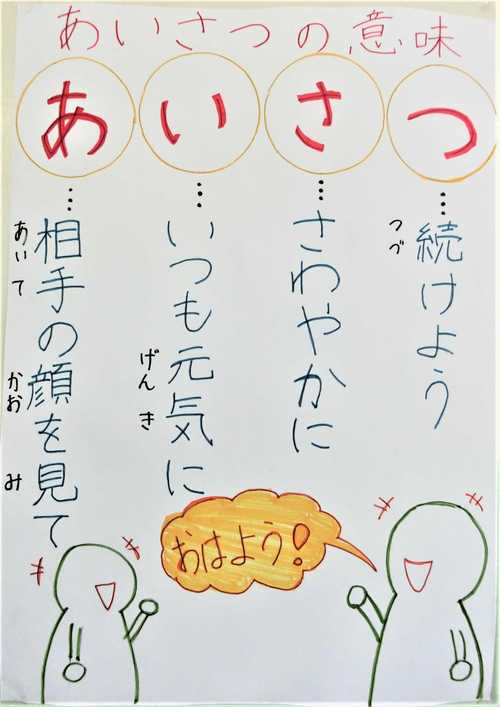 あいさつの意味
あ
い
さ
つ
…相手の顔を見て
あいて
かお
み
…いつも元気に
げんき
…さわやかに
…続けよう
つづ
おはよう!